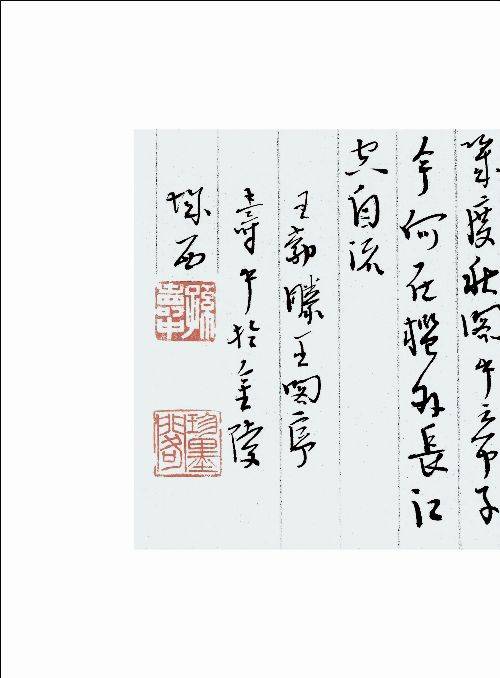 幾度秋閣中帝子
今何在檻外長江
空自流
王勃滕王閣序
壽中於金陵
城西
孫壽中
珍墨閣